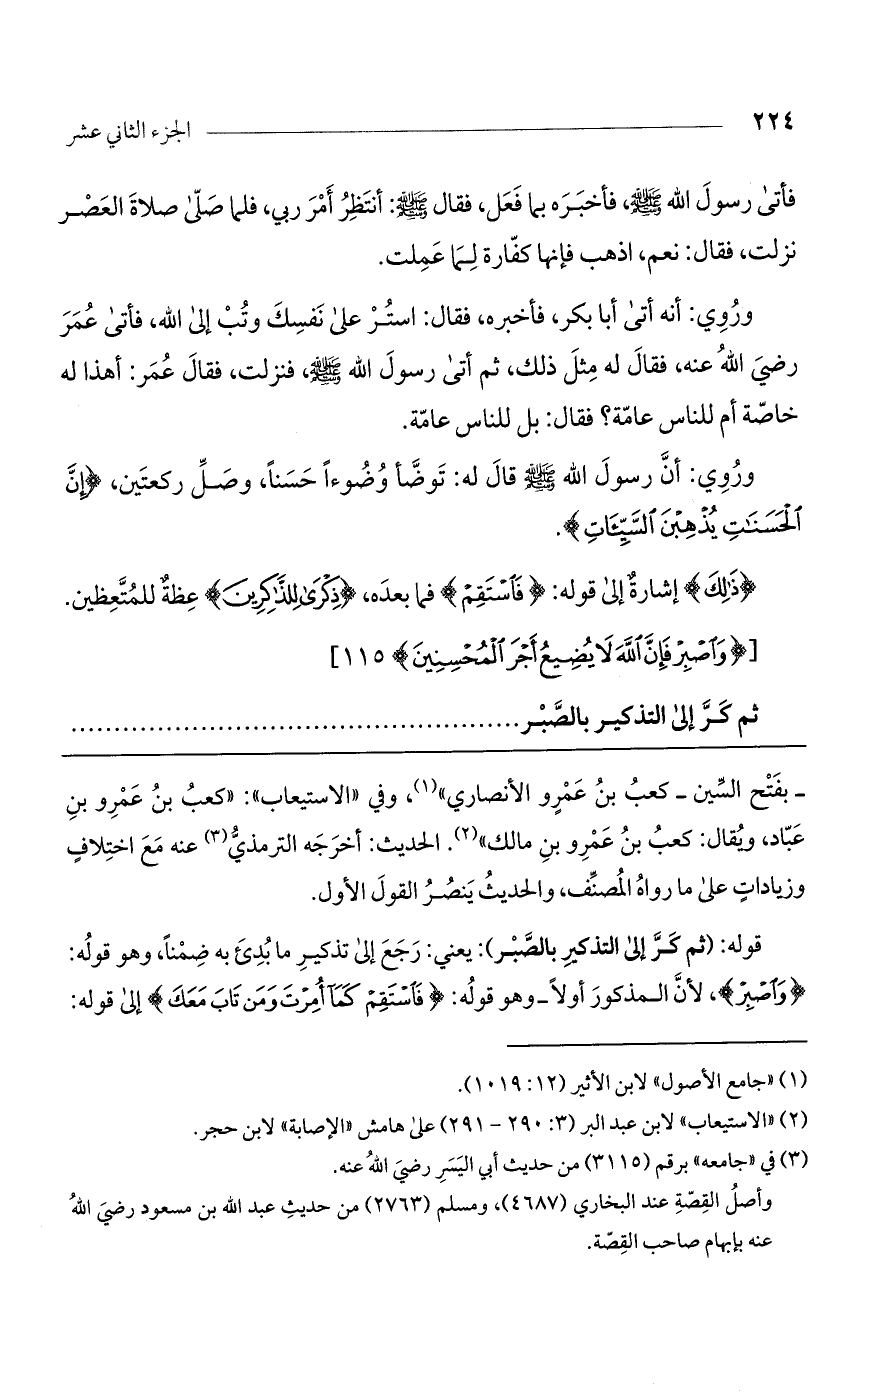 ٢٢٤ الجزء الثاني عشر
فأتىٰ رسولَ الله ﷺ، فأخبَرَه بما فَعَل، فقال ﷺ: أنتَظِرُ أَمْرَ ربي، فلما صَلّىٰ صلاةَ العَصْر
نزلت، فقال: نعم، اذهب فإنها كفّارة لِـمَا عَمِلت.
ورُوِي: أنه أتىٰ أبا بكر، فأخبره، فقال: استُـرْ علىٰ نَفسِكَ وتُبْ إلىٰ الله، فأتىٰ عُمَرَ
رضيَ اللهُ عنه، فقالَ له مِثلَ ذلك، ثم أتىٰ رسولَ الله ﷺ، فنزلت، فقالَ عُمَر: أهذا له
خاصّة أم للناس عامّة؟ فقال: بل للناس عامّة.
ورُوِي: أنَّ رسولَ الله ﷺ قالَ له: تَوضَّأ وُضُوءاً حَسَناً، وصَلِّ ركعتَين، ﴿إِنَّ
ٱلْحَسَنَٰتِ يُذْهِبْنَ ٱلسَّيِّـَٔاتِ﴾.
﴿ذَٰلِكَ﴾ إشارةٌ إلىٰ قوله: ﴿فَٱسْتَقِمْ﴾ فما بعدَه، ﴿ذِكْرَىٰ لِلذَّٰكِرِينَ﴾ عِظةٌ للمُتَّعِظين.
[﴿وَٱصْبِرْ فَإِنَّ ٱللَّهَ لَا يُضِيعُ أَجْرَ ٱلْمُحْسِنِينَ﴾ ١١٥]
ثم كَـرَّ إلىٰ التذكيـر بالصَّبْـر..................................................
ـ بفَتْح السِّين ـ كعبُ بنُ عَمْرٍو الأنصاري»(١)، وفي «الاستيعاب»: «كعبُ بنُ عَمْرِو بنِ
عَبّاد، ويُقال: كعبُ بنُ عَمْرِو بنِ مالك»(٢). الحديث: أخرَجَه الترمذيُّ(٣) عنه مَعَ اختِلافٍ
وزياداتٍ علىٰ ما رواهُ المُصنِّف، والحديثُ يَنصُـرُ القولَ الأول.
قوله: (ثم كَـرَّ إلىٰ التذكيرِ بالصَّبْـر): يعني: رَجَعَ إلىٰ تذكيـرِ ما بُدِئَ به ضِمْناً، وهو قولُه:
﴿وَٱصْبِرْ﴾، لأنَّ الـمذكورَ أولاً ـ وهو قولُه: ﴿فَٱسْتَقِمْ كَمَآ أُمِرْتَ وَمَن تَابَ مَعَكَ﴾ إلىٰ قوله:
(١) «جامع الأصول» لابن الأثير (١٢: ١٠١٩).
(٢) «الاستيعاب» لابن عبد البر (٣: ٢٩٠ – ٢٩١) علىٰ هامش «الإصابة» لابن حجر.
(٣) في «جامعه» برقم (٣١١٥) من حديث أبي اليَسَرِ رضيَ اللهُ عنه.
وأصلُ القِصّةِ عند البخاري (٤٦٨٧)، ومسلم (٢٧٦٣) من حديثِ عبد الله بن مسعود رضيَ اللهُ
عنه بإبهام صاحب القِصّة.